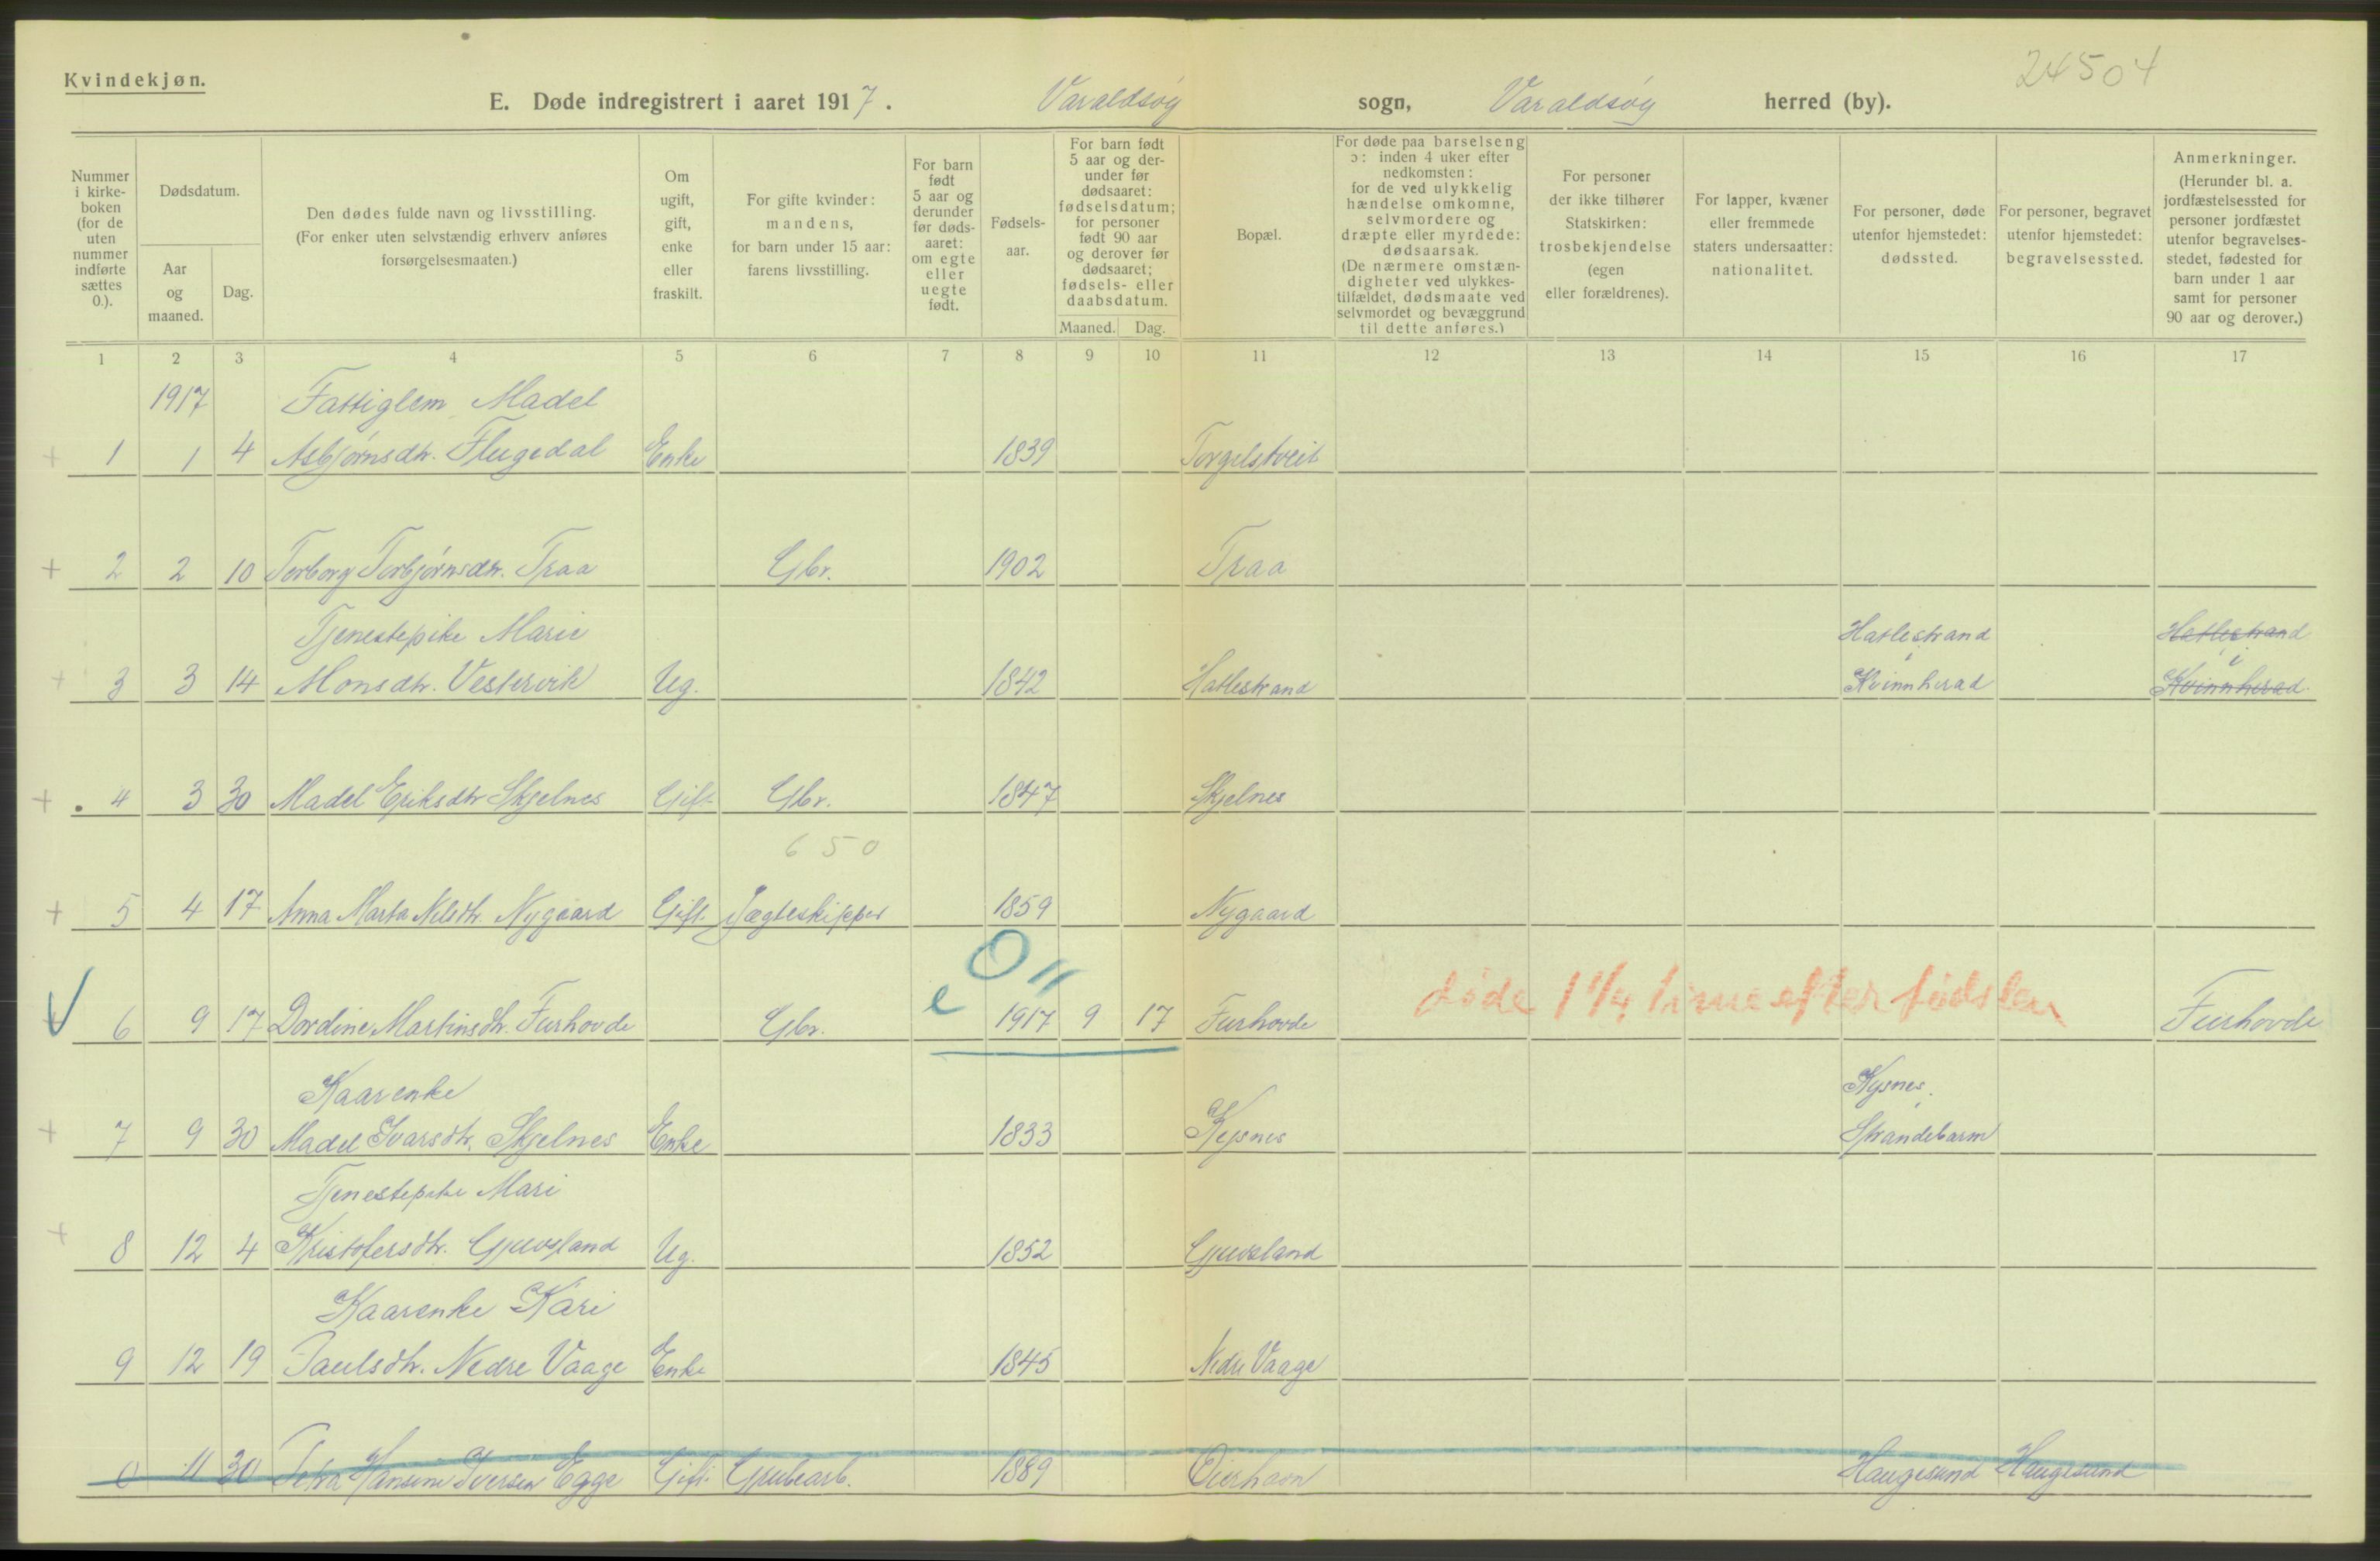 24504
Kvindekjøn.
E. Døde indregistrert i aaret 1917. Varaldsøy sogn, Varaldsøy herred (by).
Nummer i kirkeboken (for de uten nummer indførte sættes 0.).
Dødsdatum.
Aar og maaned.
Dag.
Den dødes fulde navn og livsstilling.
(For enker uten selvstændig erhverv anføres
forsørgelsesmaaten.)
Om ugift, gift, enke eller fraskilt.
For gifte kvinder: mandens, for barn under 15 aar: farens livsstilling.
For barn født 5 aar og derunder før dødsaaret: om egte eller uegte født.
Fødselsaar.
For barn født 5 aar og derunder før dødsaaret: fødselsdatum; for personer født 90 aar og derover før dødsaaret; fødsels- eller daabsdatum.
Maaned. Dag.
Bopæl.
For døde paa barselseng ɔ: inden 4 uker efter nedkomsten: for de ved ulykkelig hændelse omkomne, selvmordere og dræpte eller myrdede: dødsaarsak. (De nærmere omstændigheter ved ulykkestilfældet, dødsmaate ved selvmordet og bevæggrund til dette anføres.)
For personer der ikke tilhører Statskirken: trosbekjendelse (egen eller forældrenes).
For lapper, kvæner eller fremmede staters undersaatter: nationalitet.
For personer, døde utenfor hjemstedet: dødssted.
For personer, begravet utenfor hjemstedet: begravelsessted.
Anmerkninger. (Herunder bl. a. jordfæstelsessted for personer jordfæstet utenfor begravelsesstedet, fødested for barn under 1 aar samt for personer 90 aar og derover.)
1 2 3 4 5 6 7 8 9 10 11 12 13 14 15 16 17
1917 Fattiglem Madel
+ 1 1 4 Asbjørnsdtr. Flugedal Enke 1839 Torgelstveit
+ 2 2 10 Torborg Torbjørnsdtr. Traa Gbr. 1902 Traa
Tjenestepike Marie Hatlestrand Hatlestrand
+ 3 3 14 Monsdtr. Vestervik Ug. 1842 Hatlestrand Kvinnherad Kvinnherad
+ 4 3 30 Madel Eriksdtr Skjelnes Gift Gbr. 1847 Skjelnes
650
+ 5 4 17 Anna Marta Nilsdtr. Nygaard Gift Jægteskipper 1859 Nygaard
0 11
6 9 17 Dordine Martinsdtr. Furhovde Gbr. e 1917 9 17 Furhovde døde 1 1/4 time efter fødslen Furhovde
Kaarenke Kysnes,
+ 7 9 30 Madel Ivarsdtr. Skjelnes Enke 1833 Kysnes Strandebarm
Tjenestepike Mari
+ 8 12 4 Kristofersdtr. Gjuvsland Ug. 1852 Gjuvsland
Kaarenke Kari
9 12 19 Paulsdtr. Nedre Vaage Enke 1845 Nedre Vaage
0 11 30 Petra Hansine Iversen Egge Gift Grubearb. 1889 Øierhavn Haugesund Haugesund